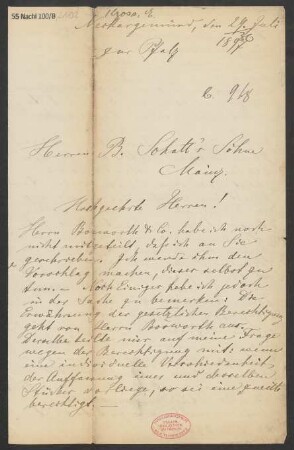 55 Nachl 100/B
Neckargemünd, den 29. Juli
Pfalz
b. 9/8
Herren B. Schott's Söhne
Mainz
Hochgeehrte Herren!
Herrn Bosworth & Co. habe ich noch
nicht mitgeteilt, daß ich an Sie
geschrieben. Ich werde ihm den
Vorschlag machen, dieser selbst zu
Noch Einiges habe ich jedoch
in der Sache zu bemerken! Die
Erwähnung der gesetzlichen Berechtigung
geht von Herrn Bosworth aus.
Derselbe teilte mir auf meine Frage
wegen der Berechtigung mit: wenn
eine individuelle Verschiedenheit
der Auffassung eines und desselben
Stückes vorliege, so sei eine zweite
berechtigt.